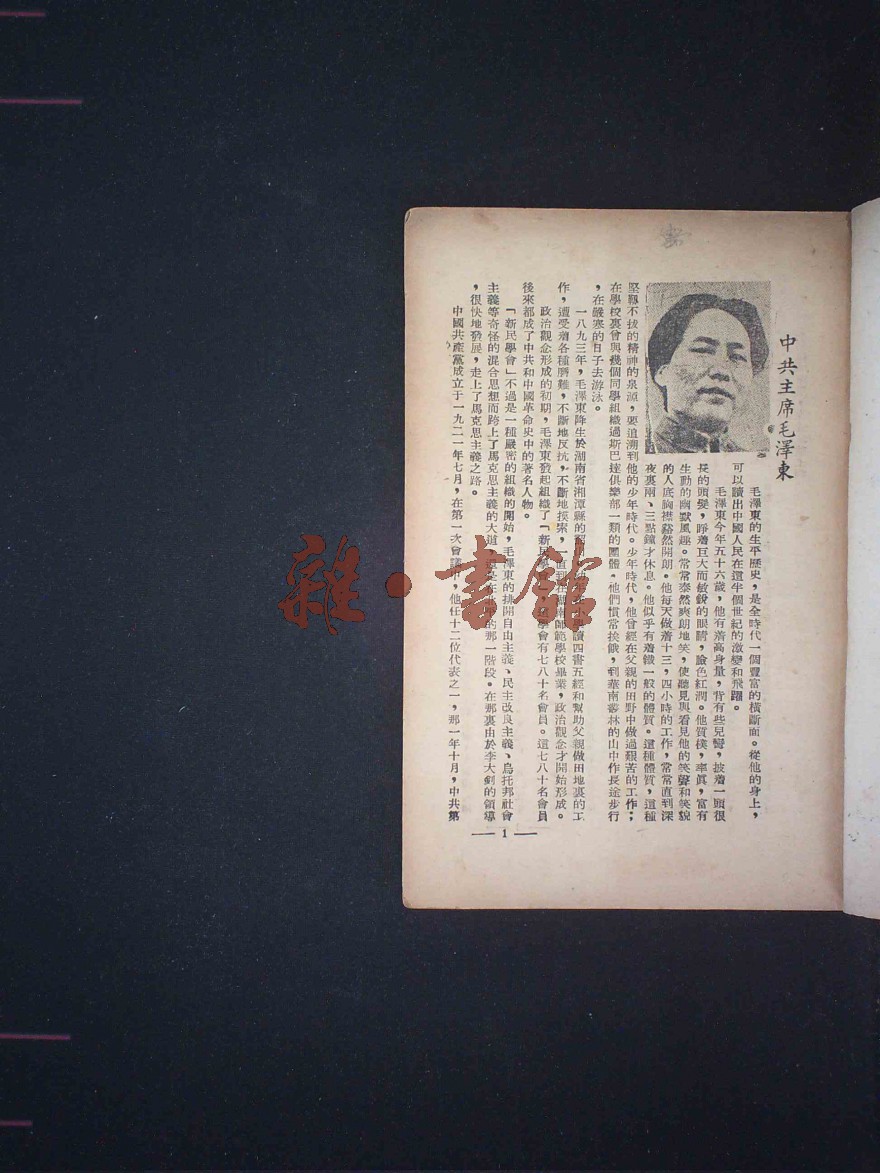 中共主席毛澤東
毛澤東的生平歷史，是全時代一個豐富的橫斷面。從他的身上，
可以讀出中國人民在這半個世紀的激變和飛躍。
毛澤東今年五十六歲，他有着高身量，背有些兒彎，披着一頭很
長的頭髮，睜着巨大而敏銳的眼睛，臉色紅潤。他質樸，率真，富有
生動的幽默風趣。常常泰然爽朗地笑，使聽見與看見他的笑聲和笑貌
的人底胸襟豁然開朗。他每天做着十三，四小時的工作，常常直到深
夜裏兩、三點鐘才休息。他似乎有着鐵一般的體質。這種體質，這種
堅韌不拔的精神的泉源，要追溯到他的少年時代。少年時代，他曾經在父親的田野中做過艱苦的工作；
在學校裏曾與幾個同學組織過斯巴達俱樂部一類的團體。他們慣常挨餓，到華南叢林的山中作長途步行
，在嚴寒的日子去游泳。
一八九三年，毛澤東降生於湖南省湘潭縣的 小學讀四書五經和幫助父親做田地裏的工
作，遭受着各種磨難，不斷地反抗，不斷地摸索，一直到在湖南師範學校畢業，政治觀念才開始形成。
政治觀念形成的初期，毛澤東發起組織了「新民學會」， 學會有七八十名會員。這七八十名會員
後來都成了中共和中國革命史中的著名人物。
「新民學會」不過是一種嚴密的組織的開始，毛澤東的排開自由主義、民主改良主義、烏托邦社會
主義等奇怪的混合思想而跨上了馬克思主義的大道， 是在 的那一階段。在那裏由於李大釗的領導
，很快地發展，走上了馬克思主義之路。
中國共產黨成立于一九二一年七月，在第一次會議中，他任十二位代表之一，那一年十月，中共第
— 1 —
雜·書館